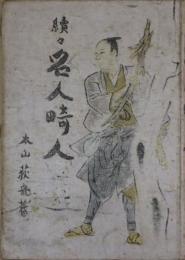 續々
名人畸人
本山荻舟著